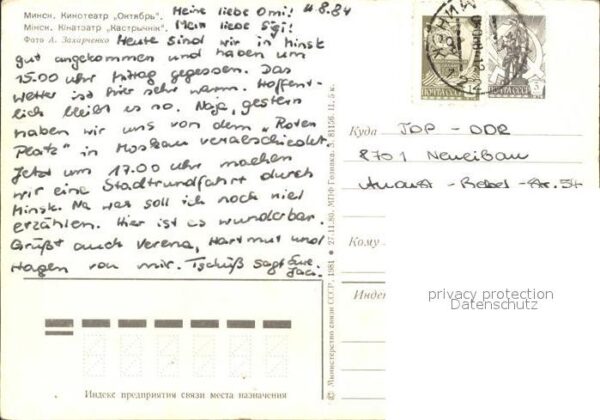 Минск. Кинотеатр „Октябрь".
Мінск. Кінатэатр „Кастрычнік".
Фото А. Захарченко
Meine liebe Omi! 4.8.84
Mein liebe Sigi!
Heute sind wir in Minsk
gut angekommen und haben um
15.00 Uhr Mittag gegessen. Das
Wetter ist hier sehr warm. Hoffent-
lich bleibt es so. Naja, gestern
haben wir uns von dem „Roten
Platz" in Moskau verabschiedet.
Jetzt um 17.00 Uhr machen
wir eine Stadtrundfahrt durch
Minsk. Na was soll ich noch viel
erzählen. Hier ist es wunderbar.
Grüßt auch Verena, Hartmut und
Hagen von mir. Tschüß sagt Eure
© Министерство связи СССР, 1981 ● 27.11.80. МПФ Гознака. З. 81156. Ц. 5 к.
ПОЧТА СССР
ПОЧТА СССР
Куда
TOP - DDR
8701 Neueibau
August - Bebel - Str. 54
Кому
Индек
privacy protection
Datenschutz
Индекс предприятия связи места назначения